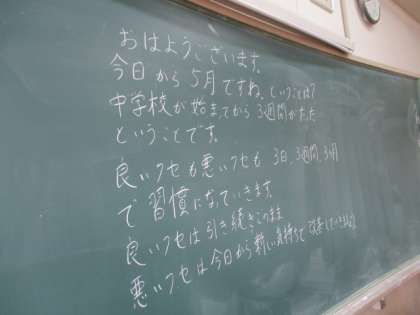 おはようございます。
今日から5月ですね。ということは?
中学校が始まってから3週間がたった
ということです。
良いクセも悪いクセも 3日、3週間、3ヶ月
で習慣になっていきます。
良いクセは引き続きこのまま
悪いクセは今日から新しい気持ちで 改善していきましょう